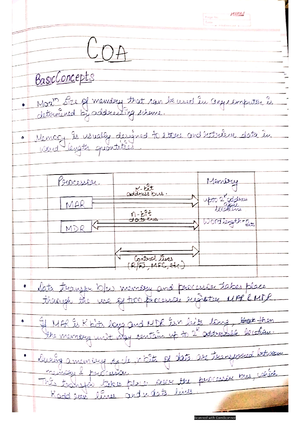 COA
Basic Concepts
• Maxᵐ size of memory that can be used in any computer is
determined by addressing scheme.
• Memory is usually designed to store and retrieve data in
word length quantities.
Processor
Memory
K-bit
address bus
MAR
upto 2ᵏ address
locations
n-bit
data bus
MDR
Word length = n bits
Control lines
(R/W, MFC, etc.)
• Data transfer b/w memory and processor takes place
through the use of two processor register MAR & MDR.
• If MAR is K bits long and MDR is n bits long, then
the memory unit may contain up to 2ᵏ addressable location
• During a memory cycle n bit of data are transferred between
memory & processor.
This transfer takes place over the processor bus, which
K address lines and n data lines.
Scanned with CamScanner